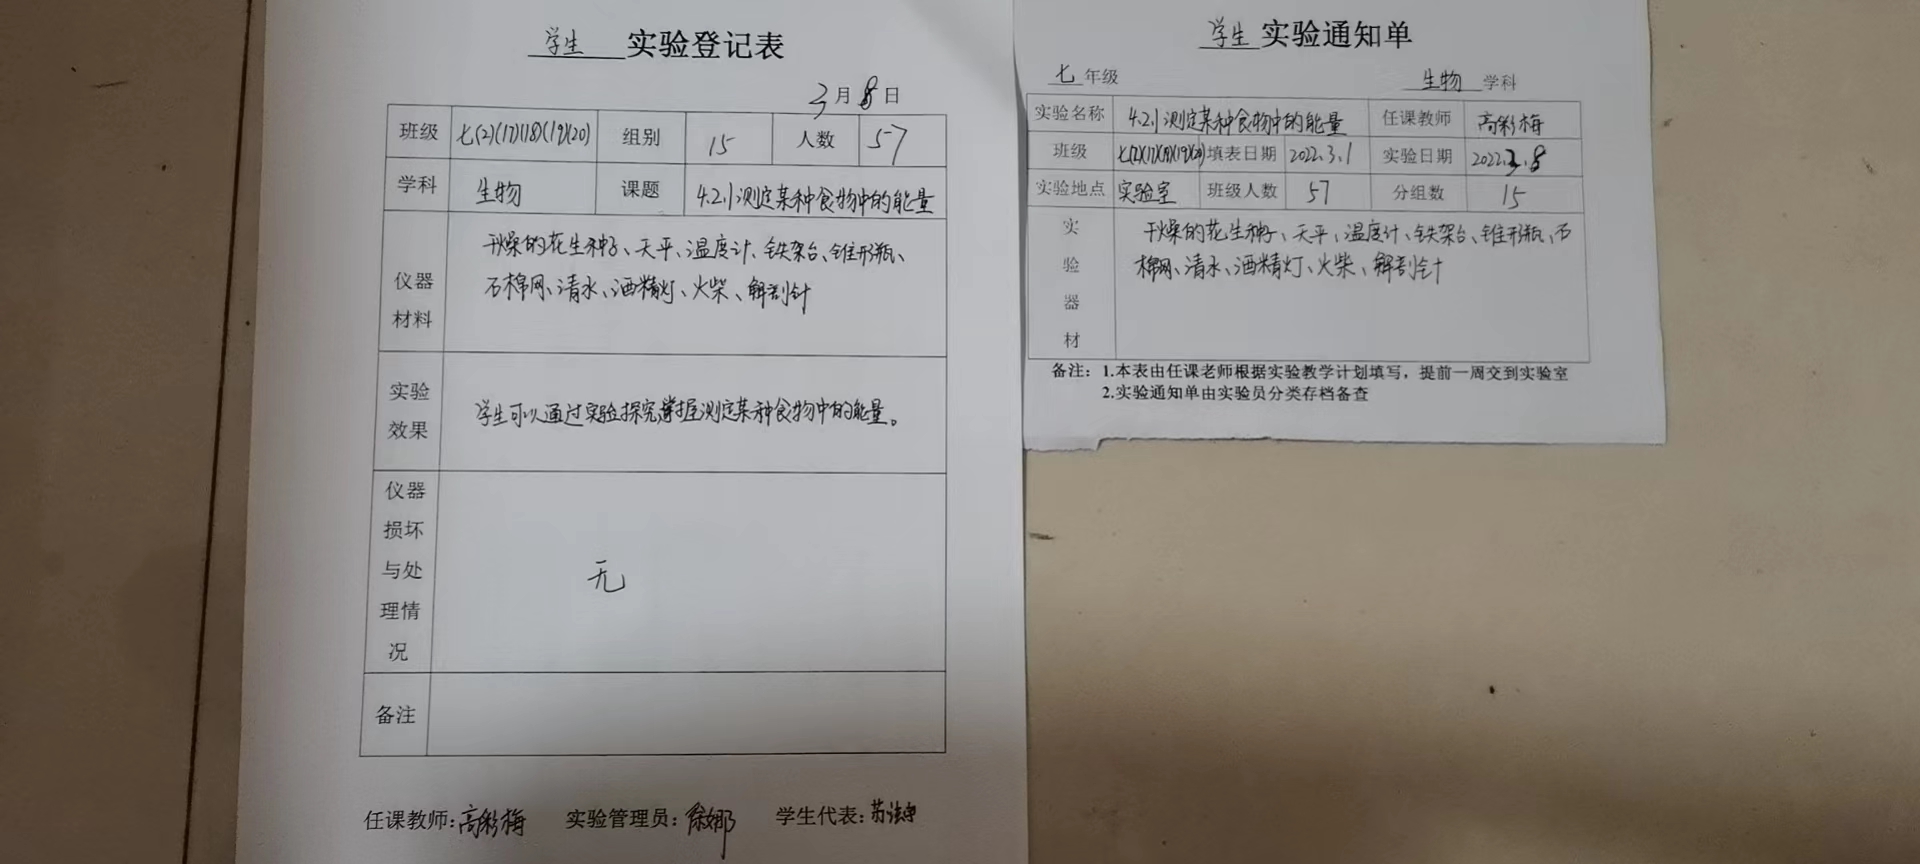 学生 实验登记表
3月8日
班级 七(2)(17)(18)(19)(20) 组别 15 人数 57
学科 生物 课题 4.2.1测定某种食物中的能量
仪器材料 干燥的花生种子、天平、温度计、铁架台、锥形瓶、
石棉网、清水、酒精灯、火柴、解剖针
实验效果 学生可以通过实验探究掌握测定某种食物中的能量。
仪器损坏与处理情况 无
备注
任课教师:高彩梅 实验管理员:徐娜 学生代表:苏
学生 实验通知单
七 年级 生物 学科
实验名称 4.2.1测定某种食物中的能量 任课教师 高彩梅
班级 七(2)(17)(18)(19)(20) 填表日期 2022.3.1 实验日期 2022.3.8
实验地点 实验室 班级人数 57 分组数 15
实验器材 干燥的花生种子、天平、温度计、铁架台、锥形瓶、石
棉网、清水、酒精灯、火柴、解剖针
备注:1.本表由任课老师根据实验教学计划填写,提前一周交到实验室
2.实验通知单由实验员分类存档备查